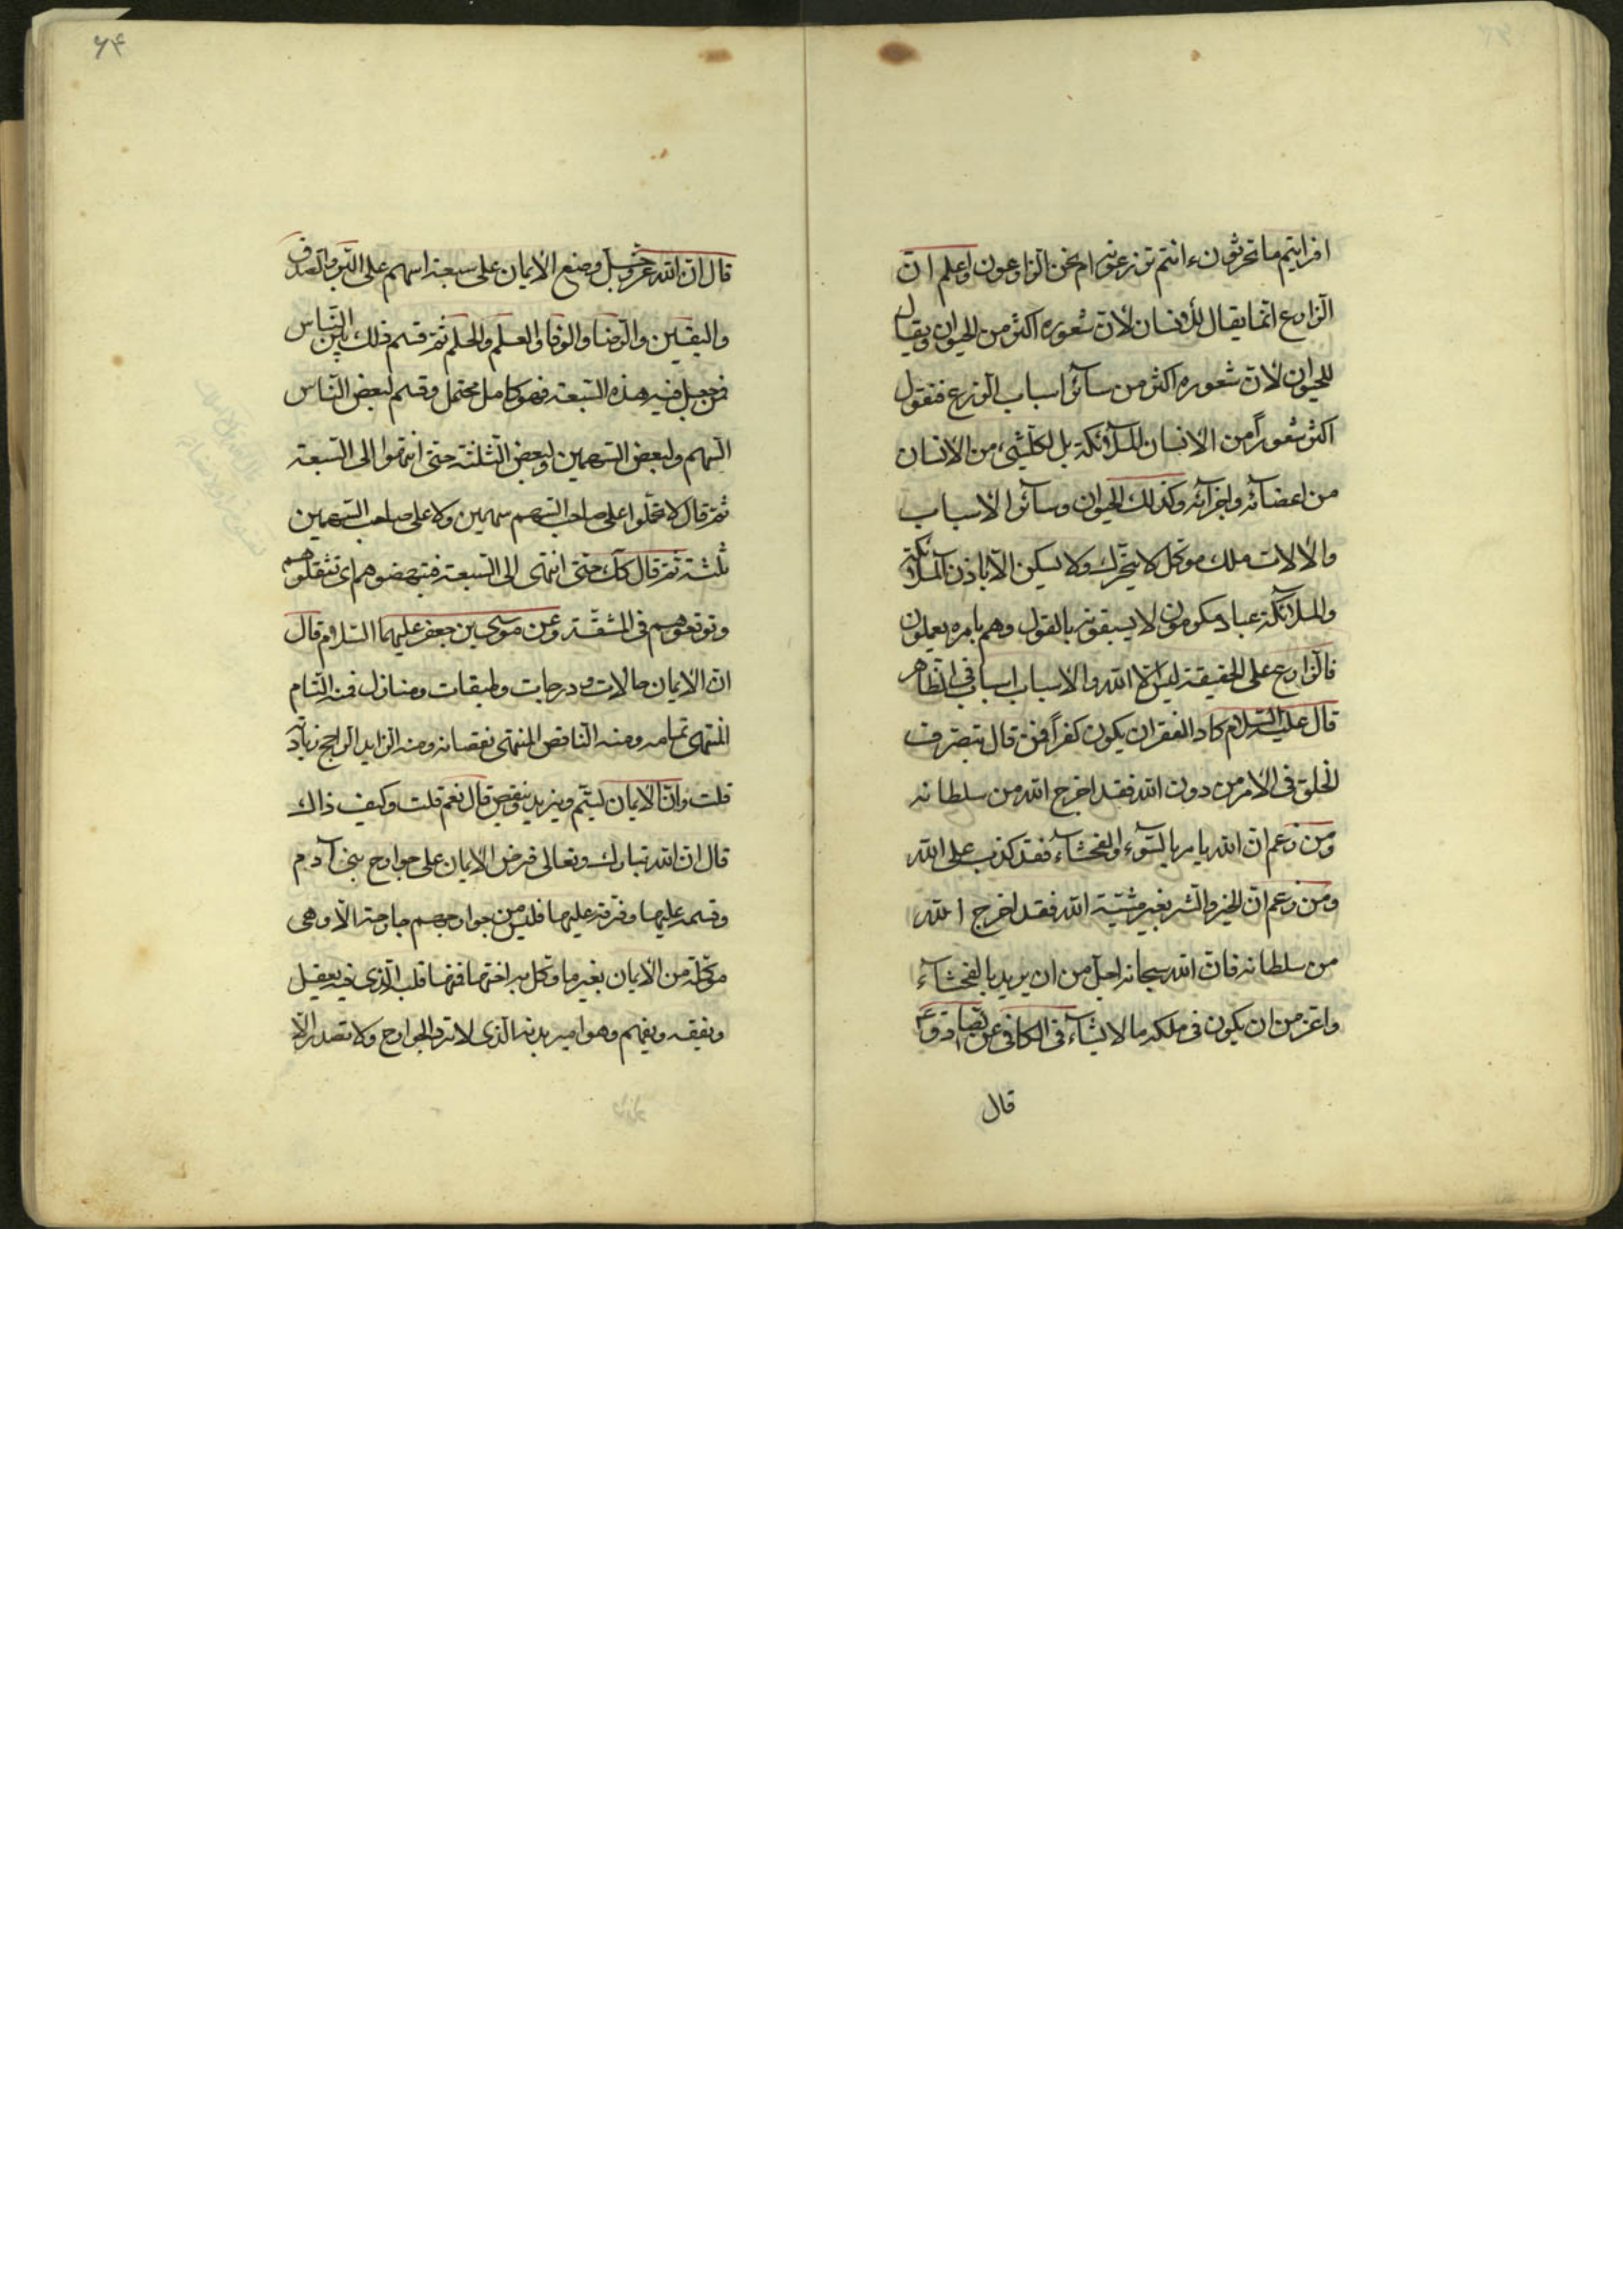 افرايتم ما تحرثون ءانتم تزرعونه ام نحن الزارعون واعلم ان
الزارع انما يقال للانسان لان شعوره اكثر من الحيوان ويقال
للحيوان لان شعوره اكثر من سائر اسباب الزرع فنقول
اكثر شعوراً من الانسان الملائكة بل لكل شيء من الانسان
من اعضائه واجزائه وكذلك الحيوان وسائر الاسباب
والالات ملك موكل لا يتحرك ولا يسكن الا باذن الملائكة
والملائكة عباد مكرمون لا يسبقونه بالقول وهم بامره يعملون
فالزارع على الحقيقة ليس الا الله والاسباب اسباب في الظاهر
قال عليه السلام كاد الفقر ان يكون كفراً فمن قال بتصرف
الخلق في الامر من دون الله فقد اخرج الله من سلطانه
ومن زعم ان الله يامر بالسوء والفحشاء فقد كذب على الله
ومن زعم ان الخير والشر بغير مشية الله فقد اخرج الله
من سلطانه فان الله سبحانه اجل من ان يريد بالفحشاء
واعز من ان يكون في ملكه ما لا يشاء في الكافي عن الصادق ع
قال
۶۴
قال ان الله عز وجل وضع الايمان على سبعة اسهم على البر والصدق
واليقين والرضا والوفا والعلم والحلم ثم قسم ذلك بين الناس
فمن جعل فيه هذه السبعة فهو كامل محتمل وقسم لبعض الناس
السهم ولبعض السهمين ولبعض الثلثة حتى انتهوا الى السبعة
ثم قال لا تحملوا على صاحب السهم سهمين ولا على صاحب السهمين
ثلثة ثم قال كك حتى انتهى الى السبعة فتبهضوهم اي تثقلوهم
وتوقعوهم في المشقة وعن موسى بن جعفر عليهما السلام قال
ان الايمان حالات و درجات وطبقات ومنازل فمنه التام
المنتهى تمامه ومنه الناقص المنتهى نقصانه ومنه الزايد الراجح زيادته
قلت وان الايمان ليتم ويزيد وينقص قال نعم قلت وكيف ذاك
قال ان الله تبارك وتعالى فرض الايمان على جوارح بني آدم
وقسمه عليها وفرقه عليها فليس من جوارحهم جارحة الا وهي
موكلة من الايمان بغير ما وكل به اختها فمنها قلب الذي فيه يعقل
ويفقه ويفهم وهو امير بدنه الذي لا ترد الجوارح ولا تصدر الا